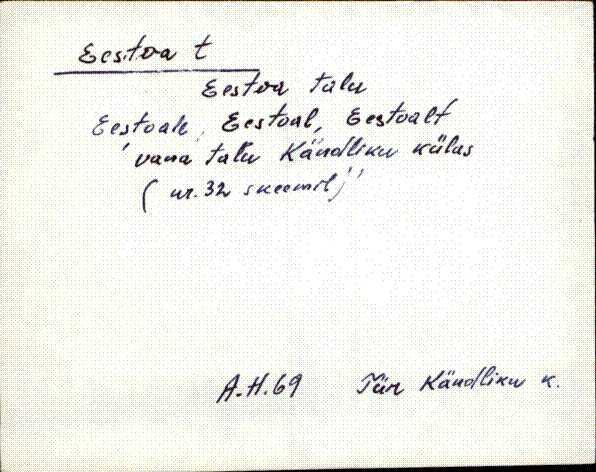 Eestoa t
Eestoa talu
Eestoale, Eestoal, Eestoalt
'vana talu Kändliku külas
(nr. 32 skeemil)'
A.H.69 Tür Kändliku k.